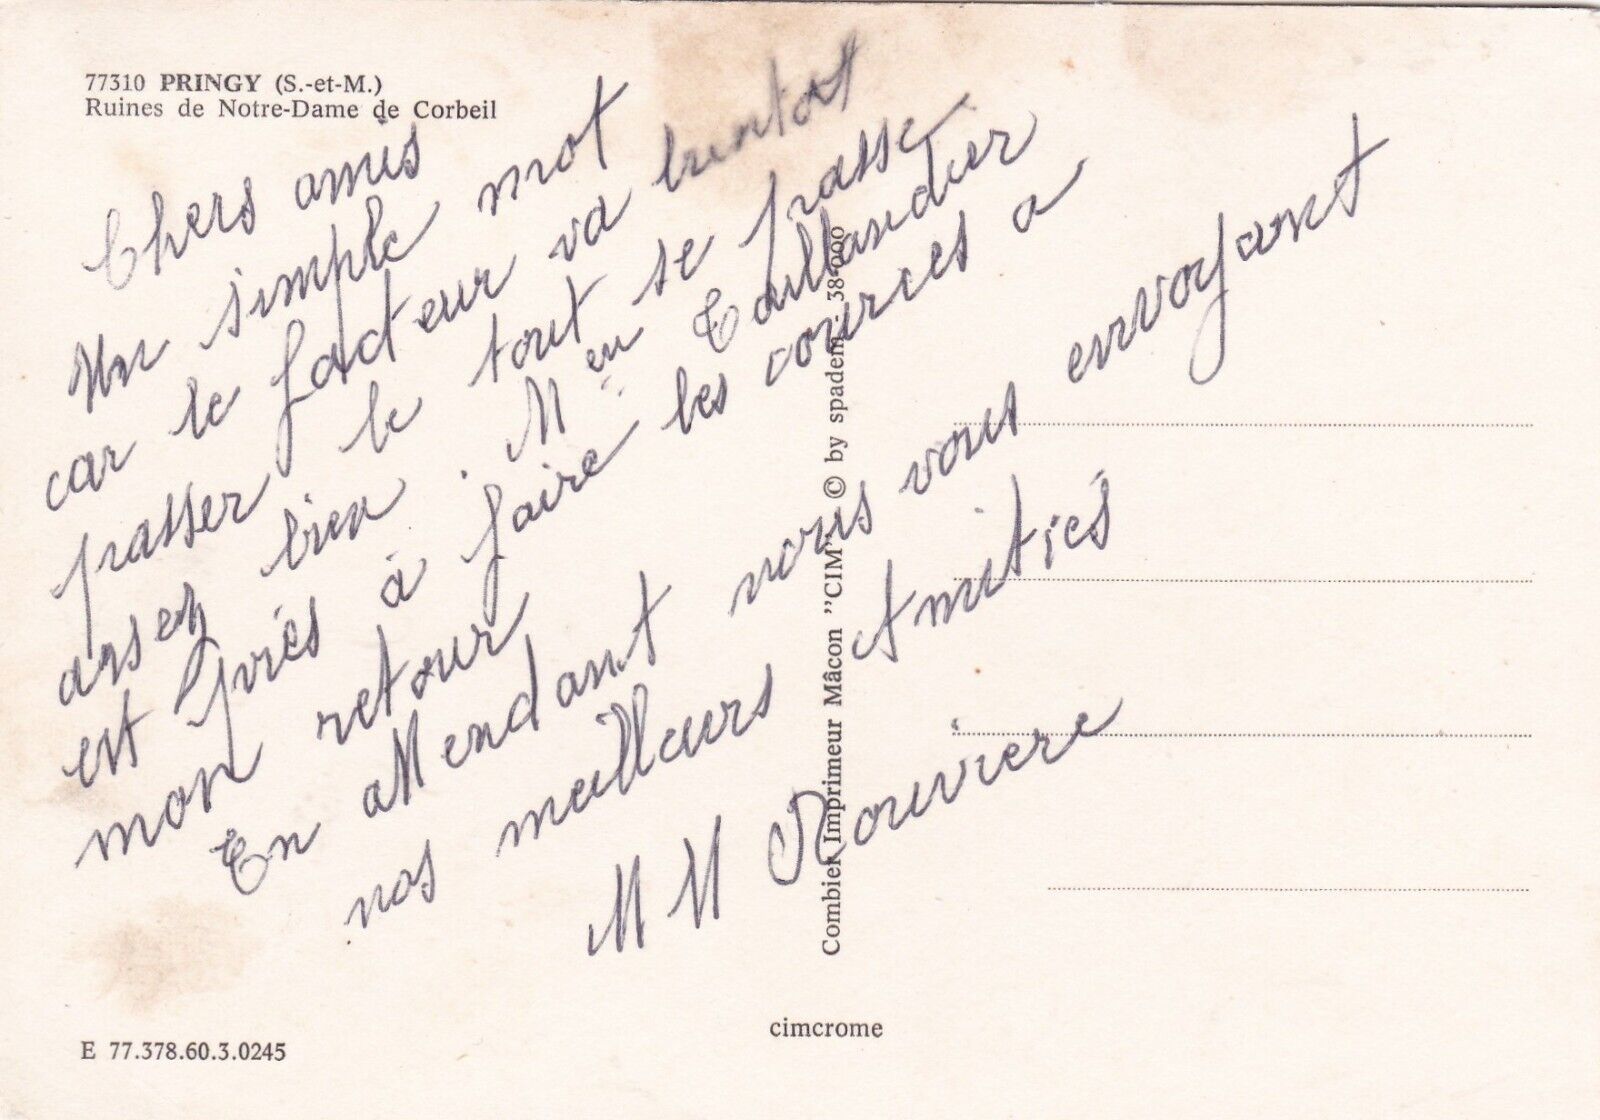 77310 PRINGY (S.-et-M.)
Ruines de Notre-Dame de Corbeil
Chers amis
Un simple mot
car le facteur va bientot
passer le tout se passe
assez bien. M eu Taillandier
est priés à faire les cources a
mon retour
En attendant nous vous envoyant
nos meilleurs Amitiés
M M Rouviere
Combier Imprimeur Mâcon "CIM" © by spadem. 38-000
cimcrome
E 77.378.60.3.0245